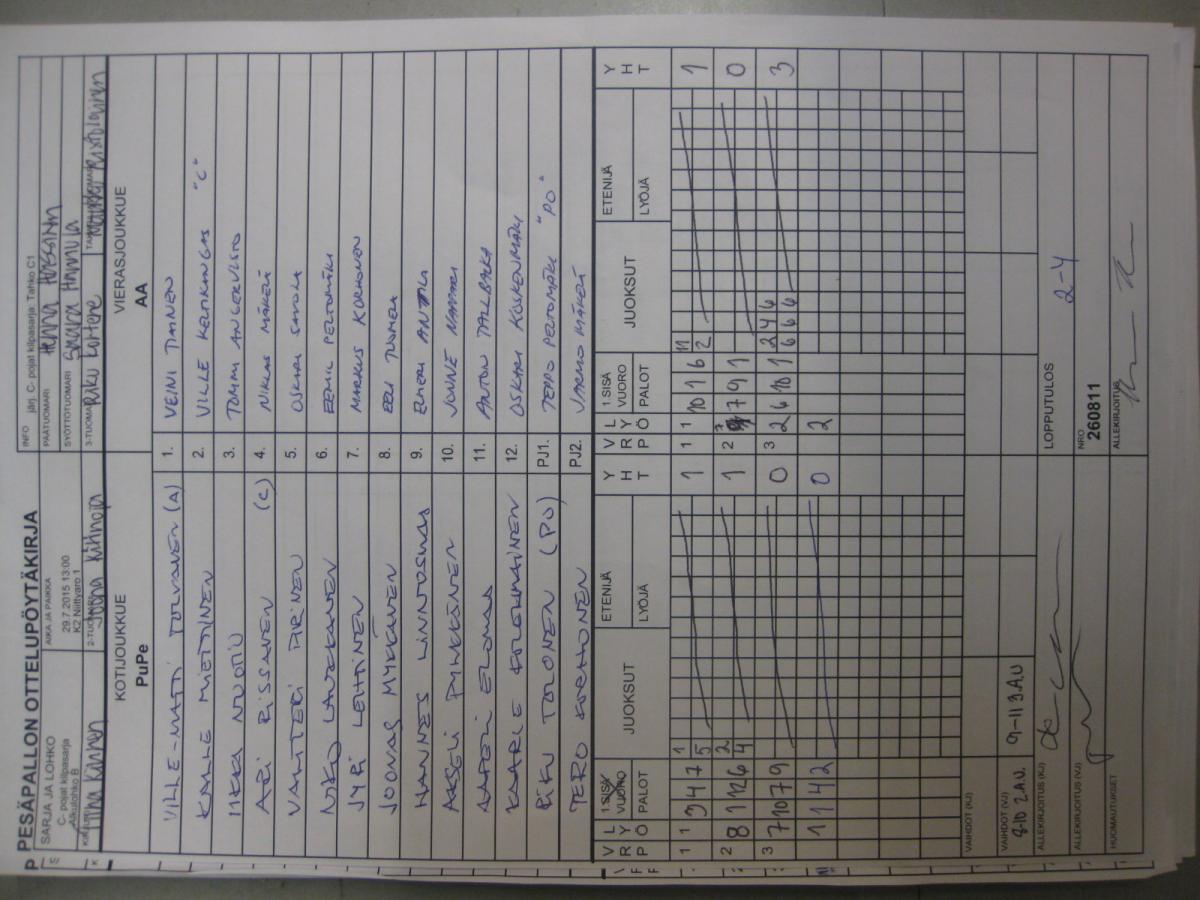 PESÄPALLON OTTELUPÖYTÄKIRJA
SARJA JA LOHKO
C- pojat kilpasarja
Alkulohko B
AIKA JA PAIKKA
29.7.2015 13:00
K2 Niittyaro 1
INFO järj. C- pojat kilpasarja: Tahko C1
PÄÄTUOMARI
SYÖTTÖTUOMARI
2-TUOMARI
3-TUOMARI
KOTIJOUKKUE
PuPe
VIERASJOUKKUE
AA
VILLE-MATTI TOLVANEN (A) 1. VEINI TIAINEN
KALLE MIETTINEN 2. VILLE KELTIKANGAS "C"
IIKKA NUOTIO 3. TOMMI ANGERVISTO
ARI RISSANEN (C) 4. NIKLAS MÄKELÄ
VALTTERI PIRINEN 5. OSKARI SAVOLA
NIKO LAUKKANEN 6. EEMIL PELTOMÄKI
JYRI LEHTINEN 7. MARKUS KORHONEN
JOONAS MYKKÄNEN 8. EELI TUOMELA
HANNES LINNOSMAA 9. ELMERI ANTILA
AKSELI PYLKKÄNEN 10. JONNE
AAPELI ELOMAA 11. ANTON TALLBACKA
KAARLE KOLEHMAINEN 12. OSKARI KOSKENMÄKI
RIKU TOLONEN (PJ) PJ1. TEPPO PELTOMÄKI "PJ"
TERO KORHONEN PJ2. JARMO MÄKELÄ
V R P
L Y Ö
1.SISÄ
VUORO
PALOT
JUOKSUT
ETENIJÄ
LYÖJÄ
Y H T
V R P
L Y Ö
1.SISÄ
VUORO
PALOT
JUOKSUT
ETENIJÄ
LYÖJÄ
Y H T
1 1 3 4 7 1 5 1 1 1 10 1 6 11 2 1
2 8 11 2 6 2 4 1 2 7 7 9 1 0
3 7 10 7 9 0 3 2 6 10 1 2 4 6 6 6 6 3
1 11 4 2 0 2
VAIHDOT (KJ)
VAIHDOT (VJ)
8-10 2.A.V. 9-11 3.A.V
LOPPUTULOS 2-4
ALLEKIRJOITUS (KJ)
ALLEKIRJOITUS (VJ)
NRO
260811
HUOMAUTUKSET
ALLEKIRJOITUS